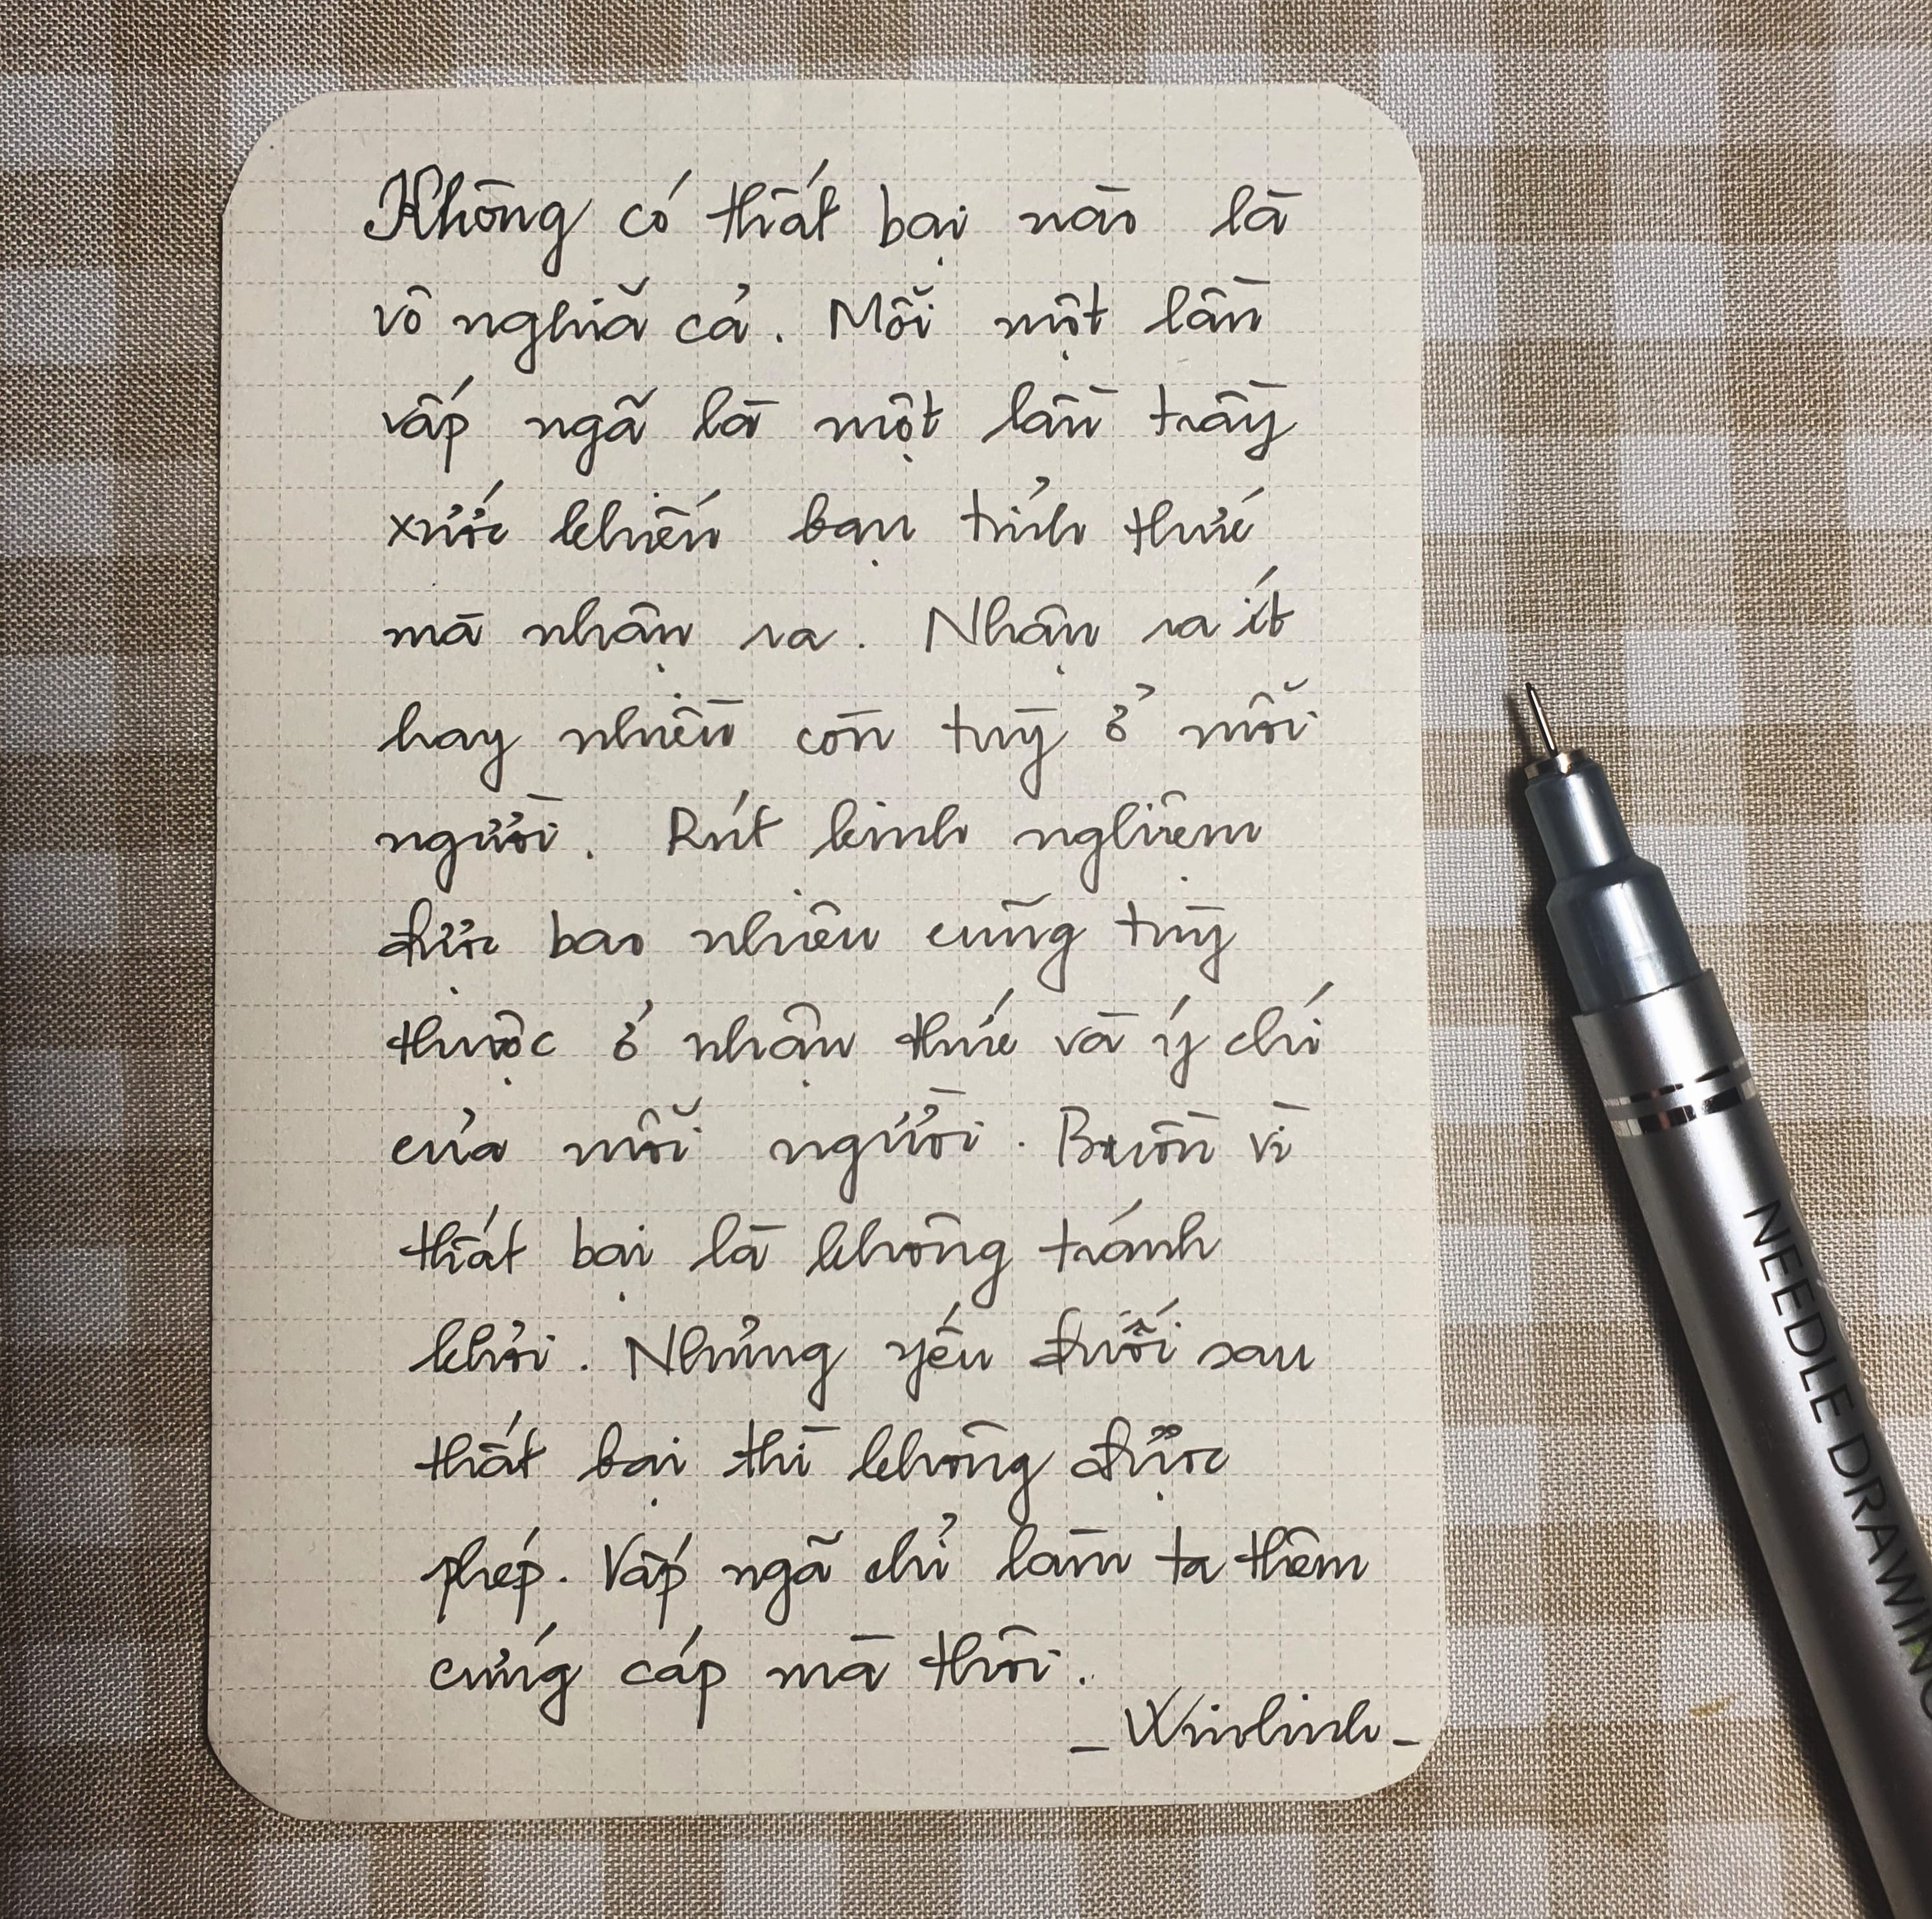 Không có thất bại nào là
vô nghĩa cả. Mỗi một lần
vấp ngã là một lần trầy
xước khiến bạn tỉnh thức
mà nhận ra. Nhận ra ít
hay nhiều còn tuỳ ở mỗi
người. Rút kinh nghiệm
được bao nhiêu cũng tuỳ
thuộc ở nhận thức và ý chí
của mỗi người. Buồn vì
thất bại là không tránh
khỏi. Nhưng yếu đuối sau
thất bại thì không được
phép. Vấp ngã chỉ làm ta thêm
cứng cáp mà thôi.
_ Winlinh _
NEEDLE DRAWING